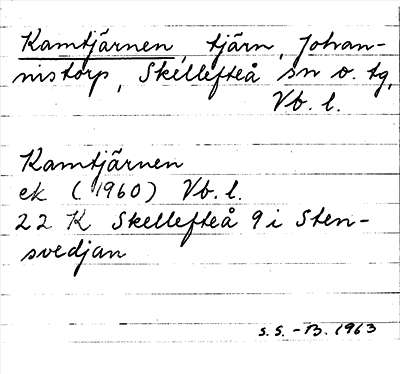 Kamtjärnen, tjärn, Johan-
nistorp, Skellefteå sn o. tg,
Vb. l.
Kamtjärnen
ek (1960) Vb. l.
22 K Skellefteå 9 i Sten-
svedjan
S. S. - B. 1963